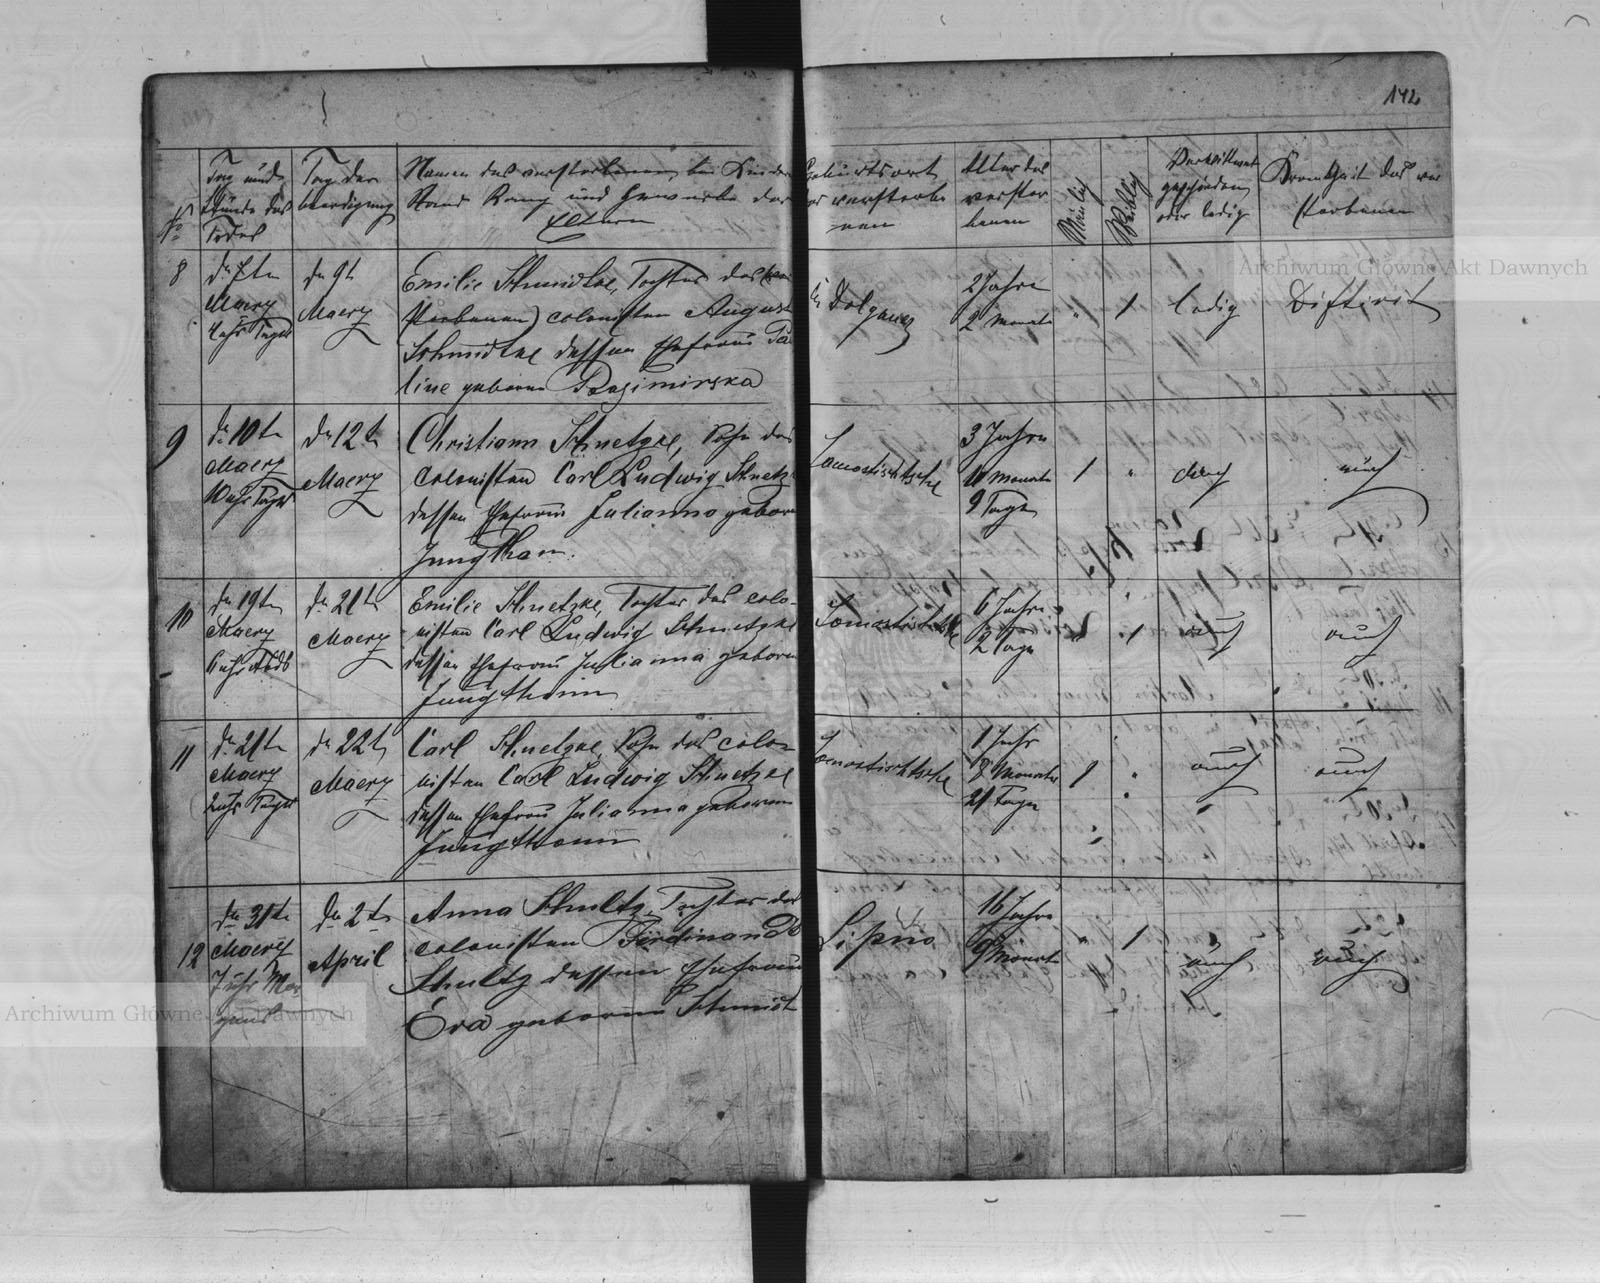 142
No
Tag und
Stunde des
Todes
Tag der
beerdigung
Namen des verstorbenen bei Kinder
Stand Rang und Gewerbe der
Eltern
Geburtsort
der verstorbe
nen
Alter des
verstor
benen
Mänlich
Weiblich
Verheiratet
geschieden
oder ledig
Krankheit des ver
storbenen
8
dn 7tn
Maerz
4 uhr Tages
dn 9t
Maerz
Emilie Schmidtke, Tochter des (ver
storbenen) colonisten August
Schmidtke dessen Ehefrau Pau
line geboren Kazimirska
2 Jahre
2 Monate
"
1
ledig
Difterit
9
dn 10tn
Maerz
10 uhr Tages
dn 12tn
Maerz
Christiann Schnetzke, Sohn des
Colonisten Carl Ludwig Schnetzke
dessen Ehefrau Julianna geboren
Jungthan.
3 Jahre
10 Monate
9 Tage
1
"
auch
10
dn 19tn
Maerz
6 uhr Abds
dn 21tn
Maerz
Emilie Schnetzke, Tochter des colo-
nisten Carl Ludwig Schnetzke
dessen Ehefrau Julianna geboren
Jungthann
6 Jahre
2 Tage
"
1
auch
auch
11
dn 21tn
Maerz
2 uhr Tages
dn 22tn
Maerz
Carl Schnetzke, Sohn des colo-
nisten Carl Ludwig Schnetzke
dessen Ehefrau Julianna geboren
Jungthann
1 Jahr
8 Monate
21 Tage
1
"
auch
auch
12
dn 31tn
Maerz
7 uhr Mor
gens
dn 2tn
April
Anna Schultz, Tochter des
colonisten Ferdinand
Schultz dessen Ehefrau
Eva geboren Schmidt
Lipno
16 Jahre
9 Monate
"
1
auch
auch
Archiwum Główne Akt Dawnych
Archiwum Główne Akt Dawnych